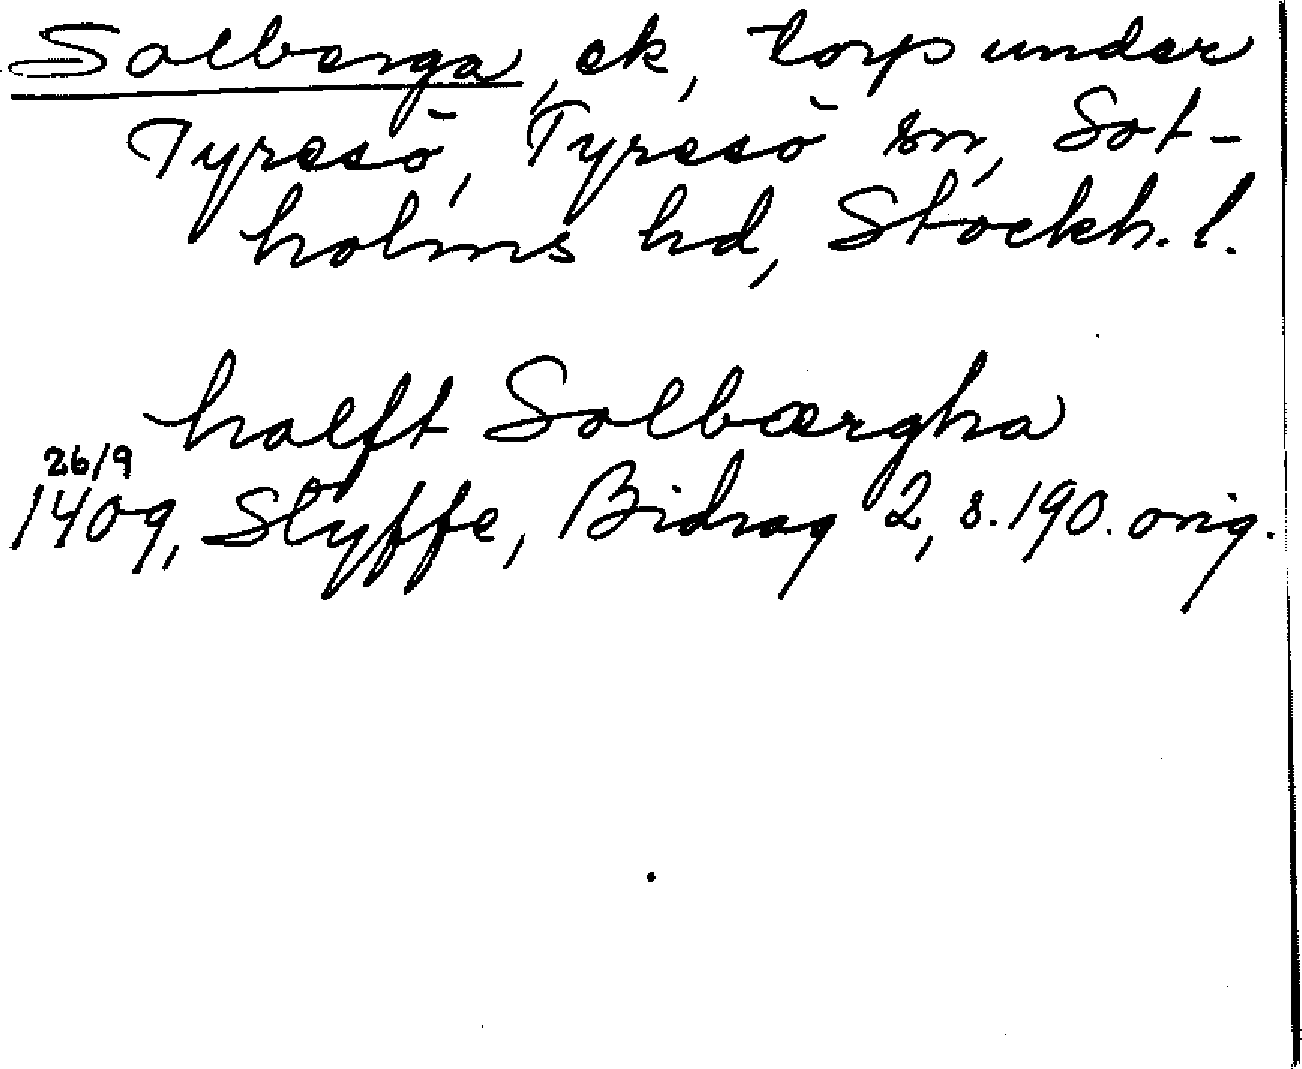 Solberga, ek, torp under
Tyresö, Tyresö sn, Sot-
holms hd, Stockh. l.
halft Solbærgha
26/9
1409, Styffe, Bidrag 2, s. 190. orig.